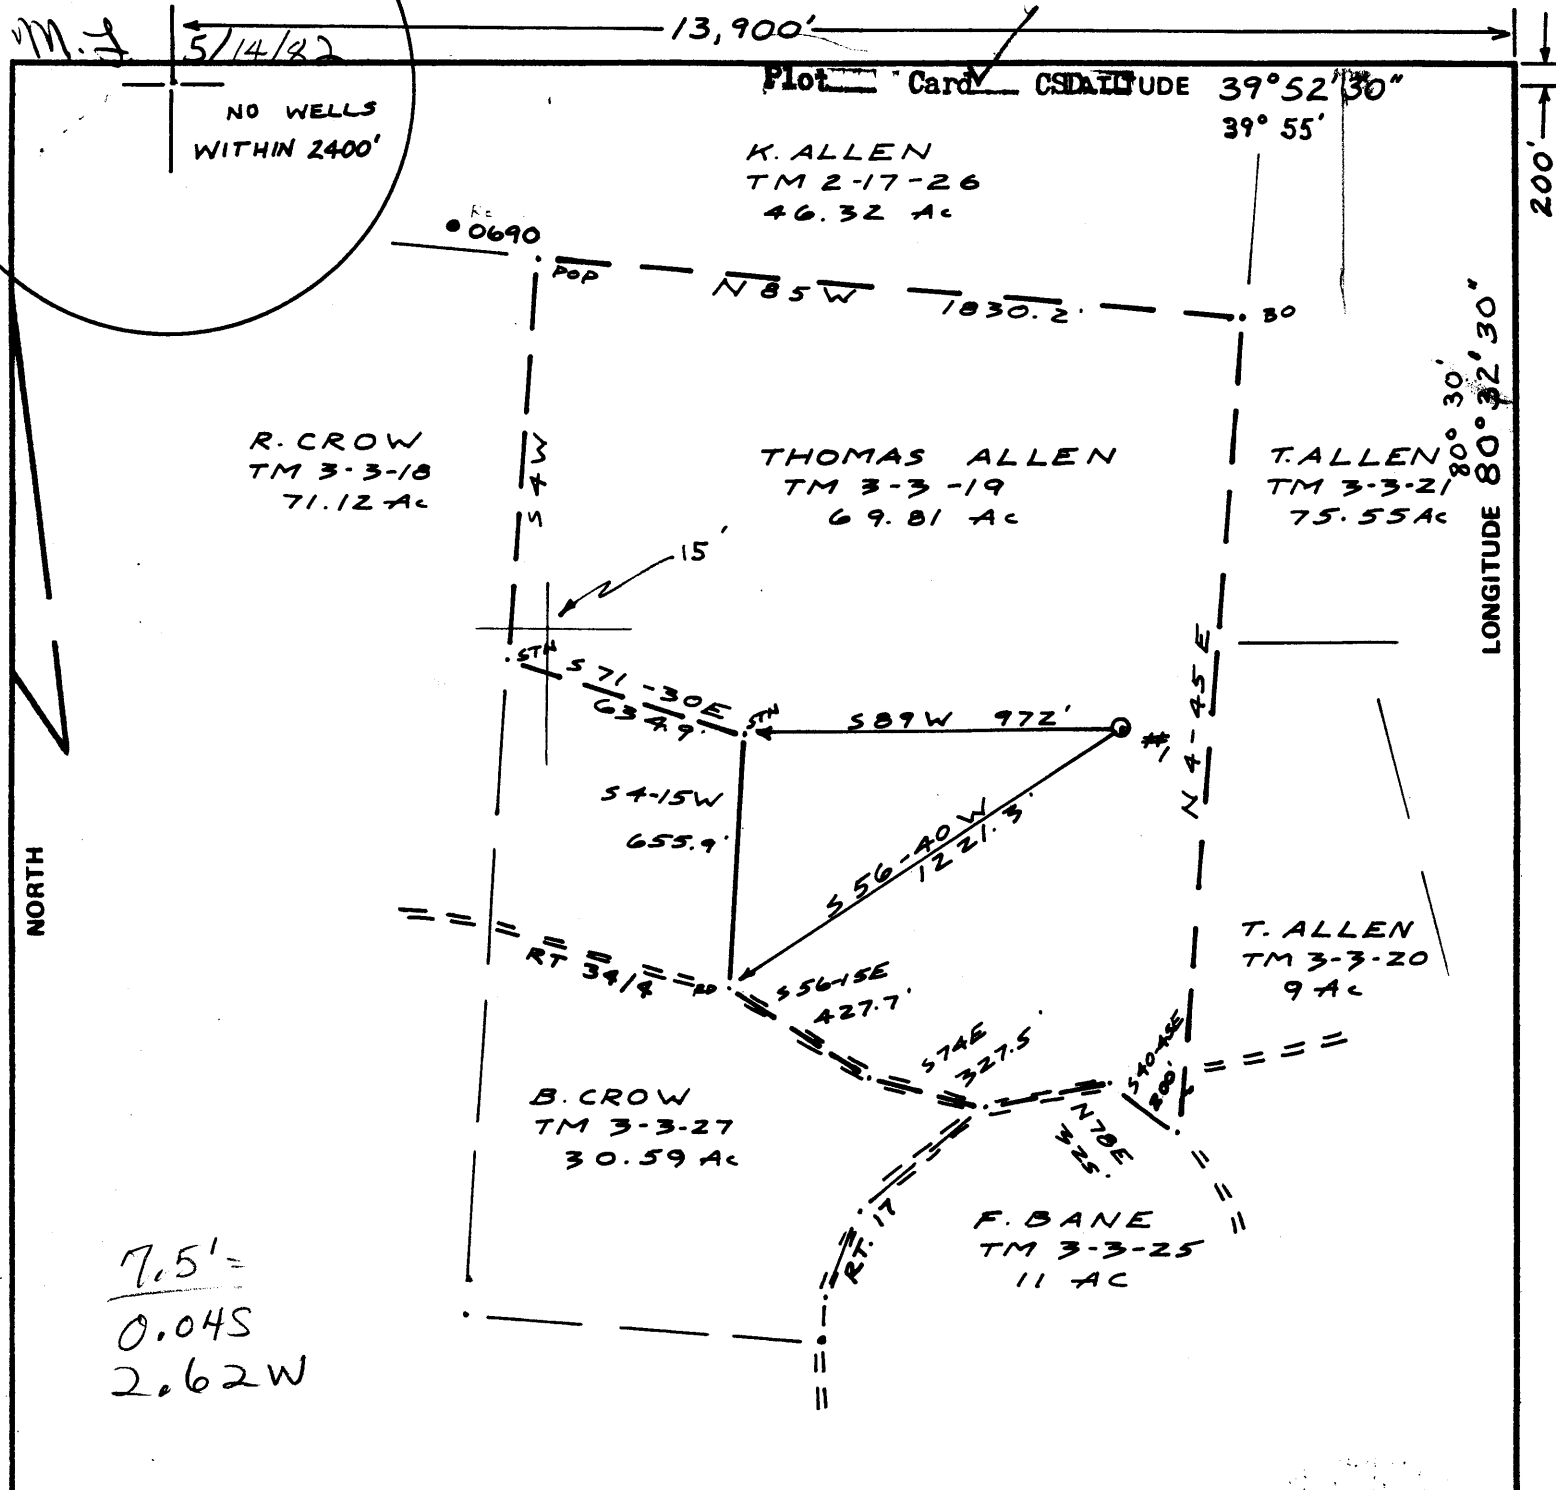 M.L 5/14/82
13,900'
Plot Card LATITUDE 39°52'30"
39° 55'
200'
NO WELLS
WITHIN 2400'
K. ALLEN
TM 2-17-26
46.32 Ac
0690
POP
N 85 W 1830.2'
BO
LONGITUDE 80°32'30"
80° 30'
R. CROW
TM 3-3-18
71.12 Ac
S 4 W
THOMAS ALLEN
TM 3-3-19
69.81 Ac
T. ALLEN
TM 3-3-21
75.55 Ac
15'
STN
S 71-30 E
634.9'
STN
S 89 W 972'
#1
N 4-45 E
S 4-15 W
655.9'
S 56-40 W
1221.3'
NORTH
RT 34/4
RD
S 56-15 E
427.7'
S 74 E
327.5'
T. ALLEN
TM 3-3-20
9 Ac
S 40-45 E
200'
N 78 E
325'
B. CROW
TM 3-3-27
30.59 Ac
RT. 17
F. BANE
TM 3-3-25
11 AC
7.5'=
0.04S
2.62W